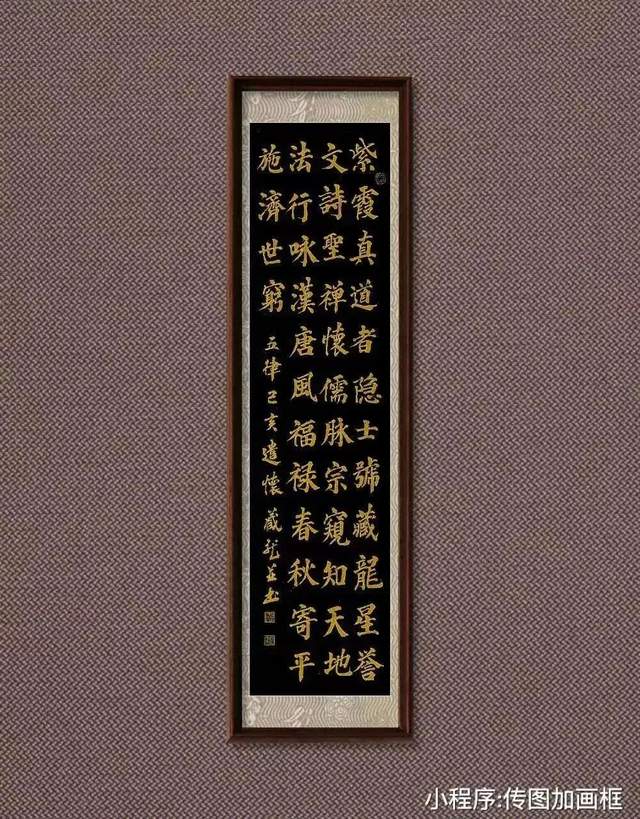 紫霞真道者隐士號藏龍星譽
文詩聖禅懷儒脉宗窺知天地
法行咏漢唐風福禄春秋寄平
施濟世窮
五律己亥遣懷藏龍並书
小程序:传图加画框